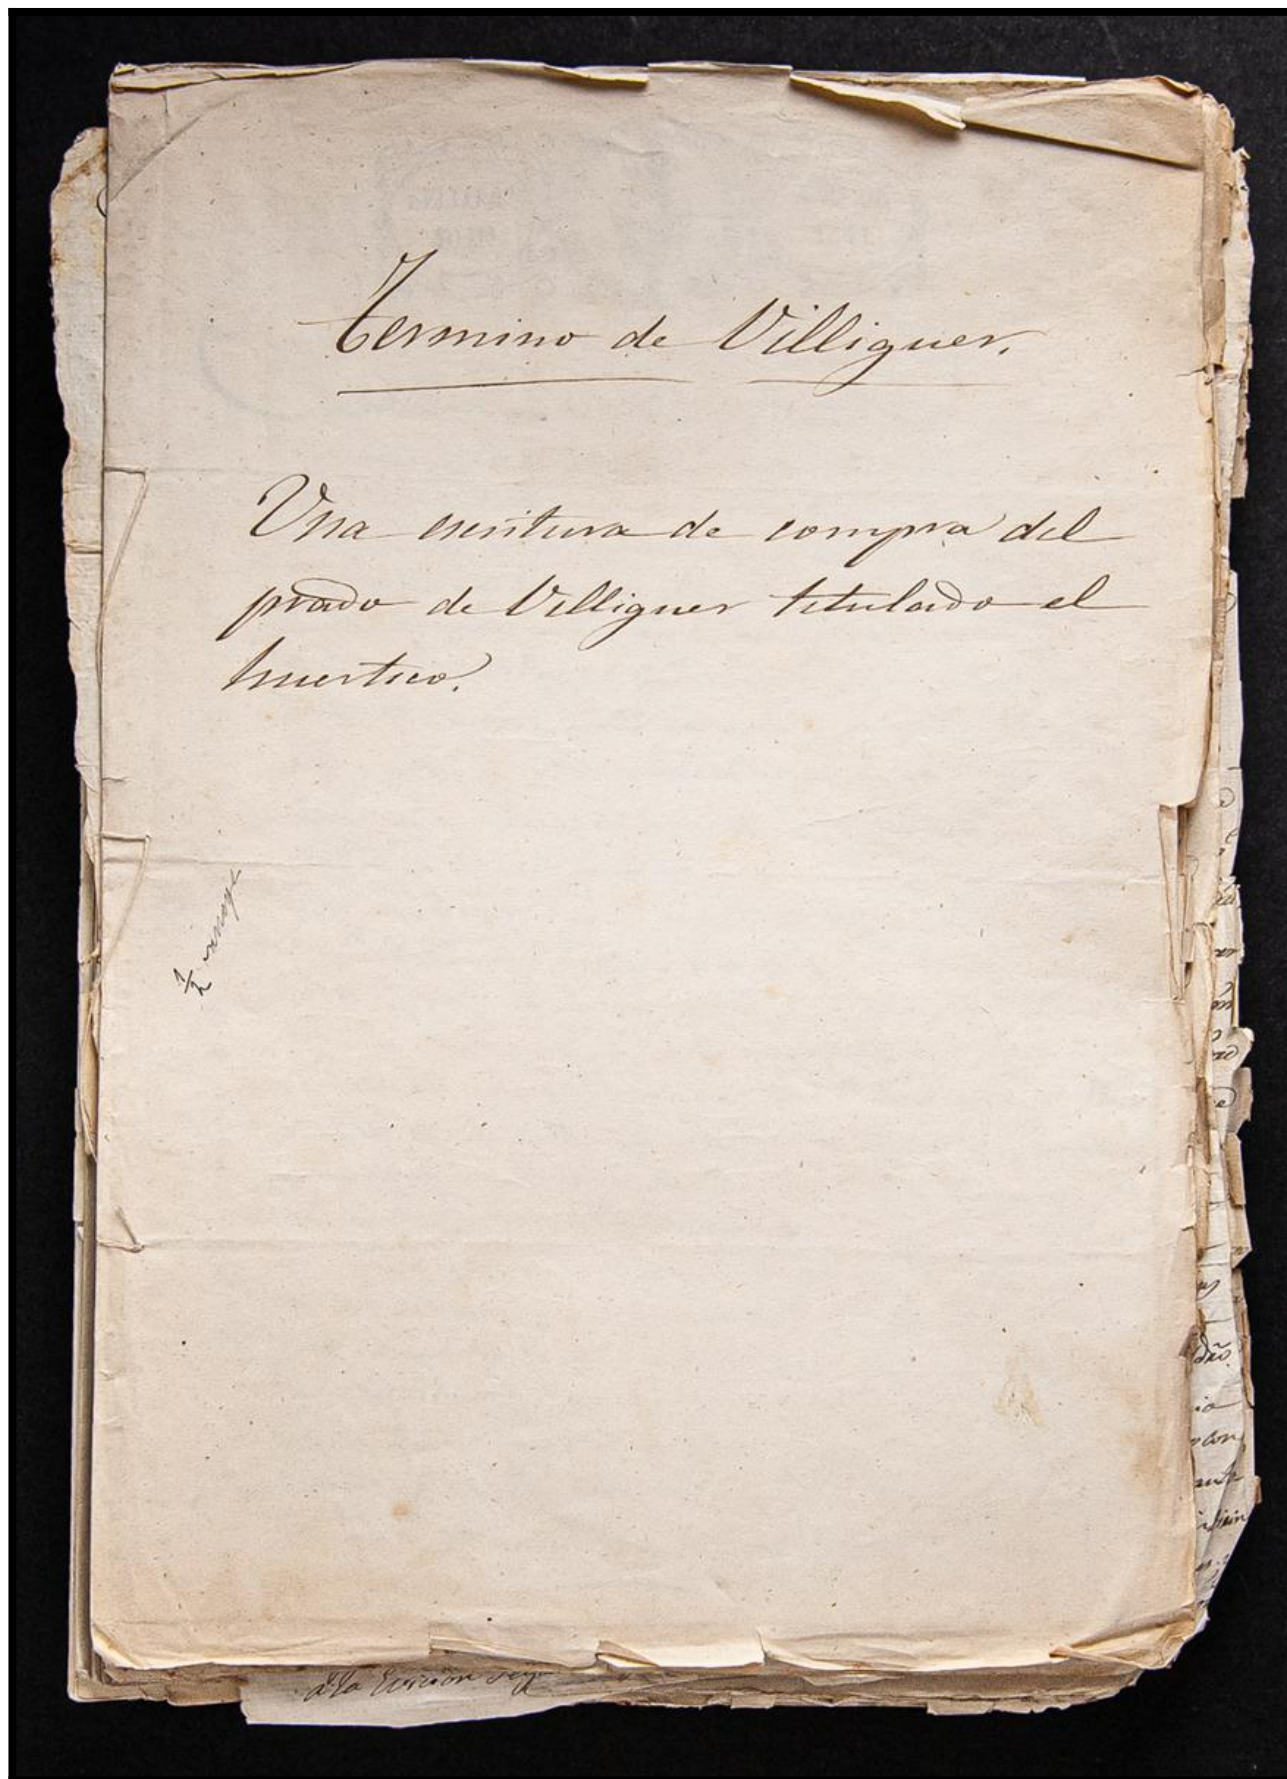 Termino de Villiguer.
Una escritura de compra del
prado de Villiguer titulado el
huertico.
1/2
a la
con